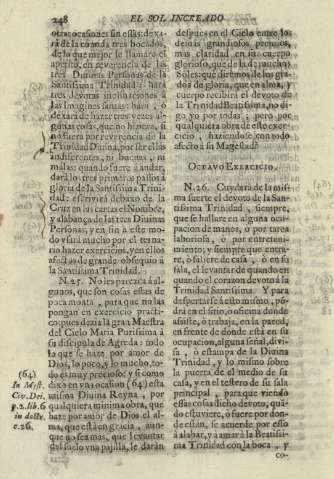 248 EL SOL INCREADO
otras ocasiones sin essas: dexa-
rà de la comida tres bocados,
de lo que mejor se llamare el
apetito, en reverencia de las
tres Divinas Personas de la
Santissima Trinidad: harà
tres devotas inclinaciones à
las Imagines santas: hará, ò
dexarà de hazer tres vezes al-
gunas cosas, que no hiziera, si
no fuera por reverencia de la
Trinidad Divina, por ser ellas
indiferentes, ni buenas, ni
malas: quando fuere à andar,
darà los tres primeros passos à
gloria de la Santissima Trini-
dad: escrivirà debaxo de la
Cruz en las cartas el Nombre,
y alabança de las tres Divinas
Personas, y en fin à este mo-
do usará mucho por el tena-
no hazer exercicios, y en ellos
afectos de grande obsequio à
la Santissima Trinidad.
N. 25. No les parezca à al-
gunos, que son cosas estas de
poca monta, para que no las
pongan en exercicio practi-
co: pues dezia la gran Maestra
del Cielo Maria Purissima à
su discipula de Agreda: todo
lo que se haze por amor de
Dios, lo poco, y lo mucho, to-
do es muy precioso: y se como
dixo en vna ocasion (64) esta
misma Divina Reyna, por
qualquiera minima obra, que
haze por amor de Dios el al-
ma, que està en gracia, aun-
que no sea mas, que levantar
del suelo vna pajilla, le daràn
(64)
In Myst.
Civ. Dei.
p. 2. lib. 6
in doctr.
c. 26.
despues en el Cielo entre los
demàs grandiosos premios,
mas claridad en su cuerpo
glorioso, que de la de muchos
Soles: què diremos de los gra-
dos de gloria, que en alma, y
cuerpo recibirà el devoto de
la Trinidad Beatissima, no di-
go yo por todas; pero por
qualquiera obra de este exer-
cicio, haziendose con todo
afecto à su Magestad?
OCTAVO EXERCICIO.
N. 26. Cuydarà de la mis-
ma suerte el devoto de la San-
tissima Trinidad, siempre,
que se hallare en alguna ocu-
pacion de manos, ò por tarea
laboriosa, ò por entreteni-
miento, y siempre que entra-
re, ò saliere de casa, ò en su
sala, el levantar de quando en
quando el corazon devoto à la
Trinidad Santissima. Y para
despertarse à esto mismo, pò-
drà en el sitio, ò oficina donde
assiste, ò trabaja, en la pared,
en frente de donde està en su
ocupacion, alguna señal, divi-
sa, ò estampa de la Divina
Trinidad, y lo mismo sobre
la puerta de el medio de su
casa, y en el testero de su sala
principal, para que viendo
essas cosas dicho devoto, quã-
do estuviere, ò fuere por don-
de estàn, se acuerde por esso
à alabar, y amarà la Beatissi-
ma Trinidad con la boca, y
co-